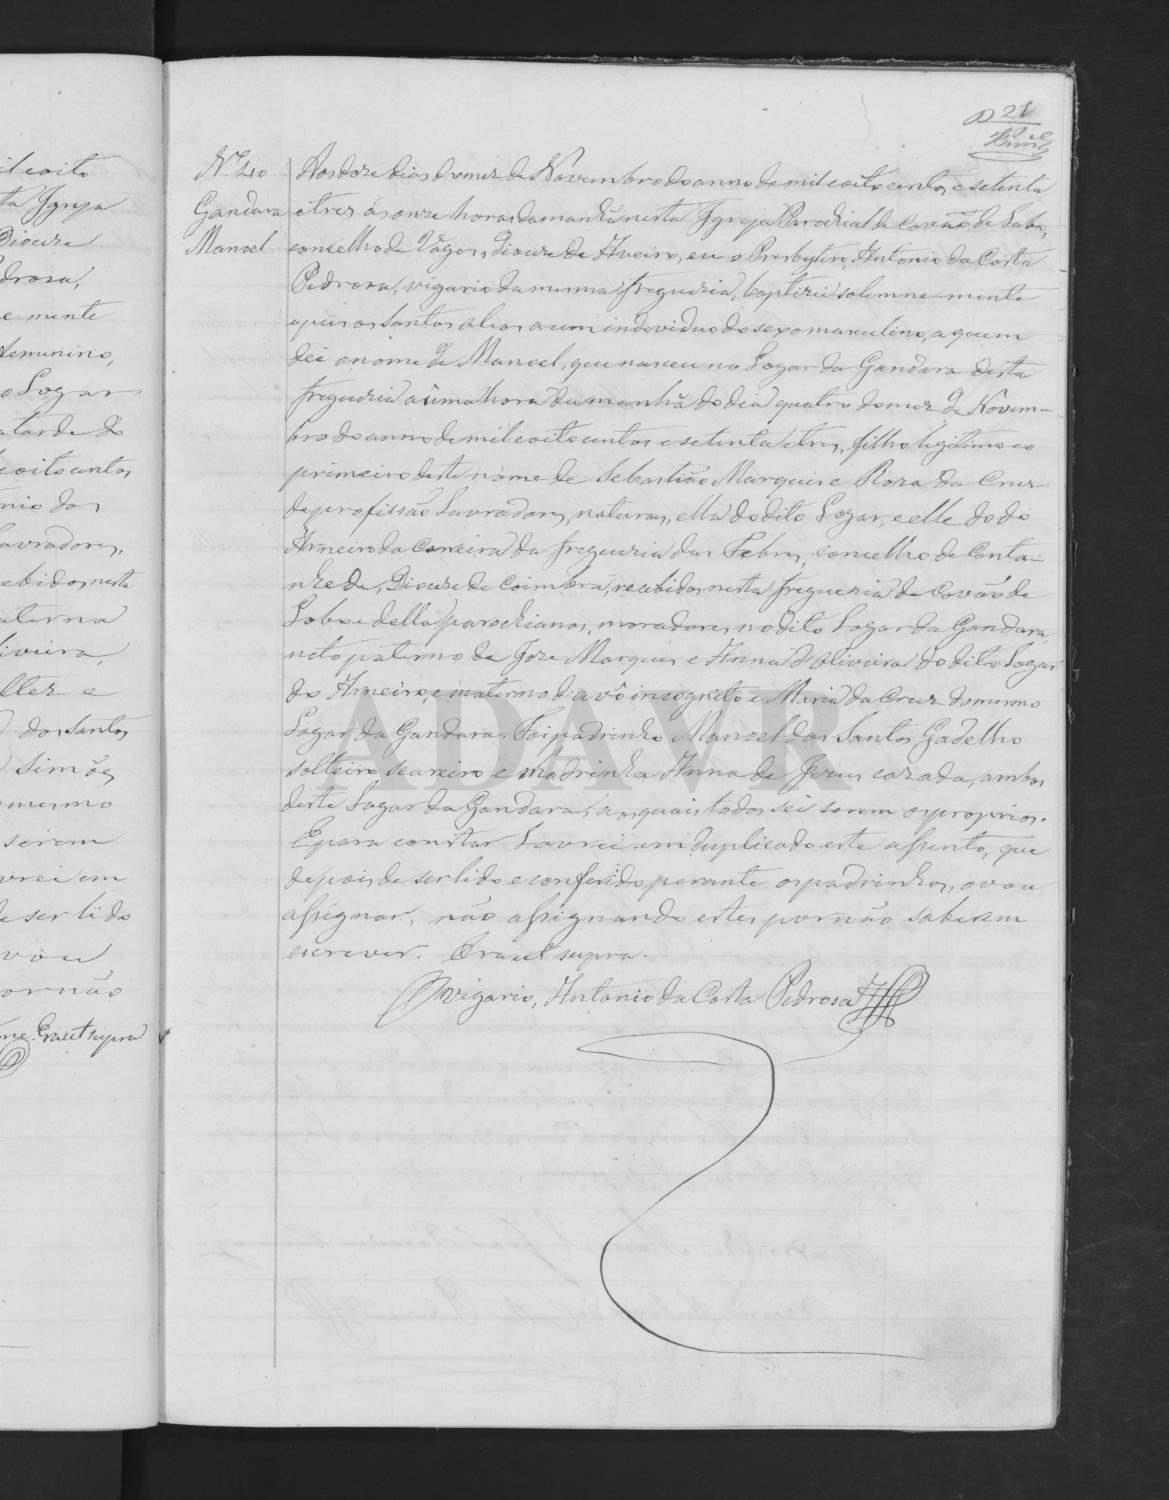 21
N.º 40
Gandara
Manoel
Aos doze dias do mez de Novembro do anno de mil e oito centos e setenta
e tres ás onze horas da manhã nesta Igreja Parochial de Covão de Lobo,
concelho de Vagos, Diocese de Aveiro, eu o Presbytero, Antonio da Costa
Pedrosa, vigario da mesma freguezia, baptizei solemne mente
e puz os santos oleos a um individuo do sexo masculino, a quem
dei o nome de Manoel, que nasceu no Logar da Gandara desta
freguezia a uma hora da manhã do dia quatro do mez de Novem-
bro do anno de mil e oito centos e setenta e tres, filho legitimo e o
primeiro deste nome de Sebastião Marques e Roza da Cruz
de profissão Lavradores, naturaes, ella do dito Logar, e elle do do
Arneiro da Caneira da freguezia das Febres, concelho de Canta-
nhede, Diocese de Coimbra, recebidos nesta freguezia de Covão de
Lobo e della parochianos, moradores no dito Logar da Gandara,
neto paterno de Joze Marques e Anna d'Oliveira do dito Logar
do Arneiro, e materno d'avô incognito e Maria da Cruz do mesmo
Logar da Gandara. Foi padrinho Manoel dos Santos Gadelho
solteiro seareiro e madrinha Anna de Jesus cazada, ambos
deste Logar da Gandara, aos quais todos sei serem os proprios.
E para constar Lavrei em duplicado este assento, que
depois de ser lido e conferido perante os padrinhos, o vou
assignar, não assignando estes por não saberem
escrever. Era ut supra.
O vigario, Antonio da Costa Pedrosa
il e oito
ta Igreja
Diocese
drosa,
e mente
femenino,
o Logar
a tarde do
e oito centos
nio dos
avradores,
ebidos nesta
aterna
liveira,
lles e
dos Santos
Simões
mesmo
serem
vrei em
e ser lido
vou
or não
Era ut supra
ADAVR